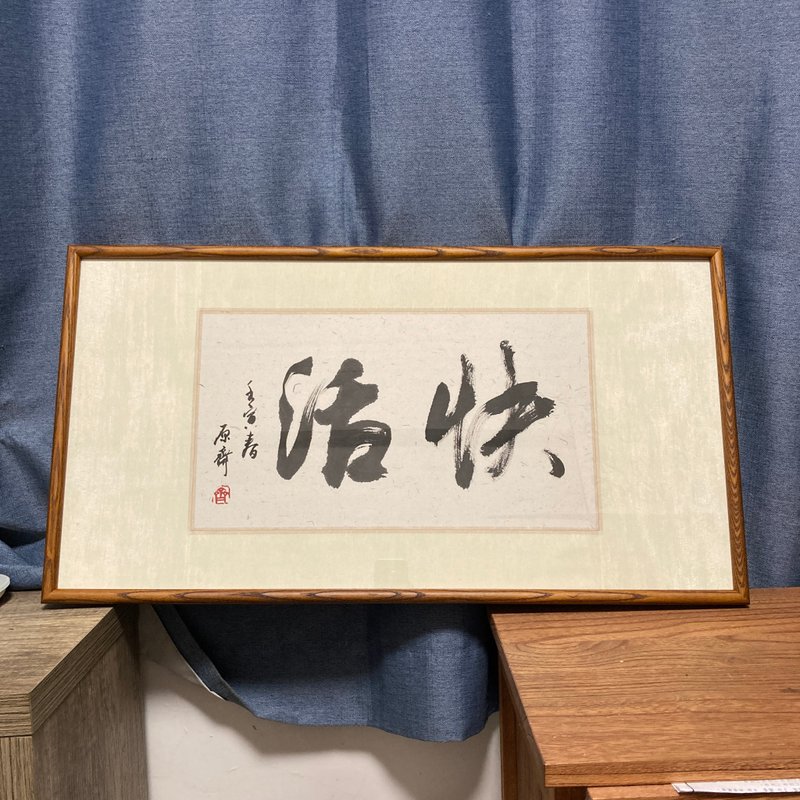 快活
壬寅春
原齊